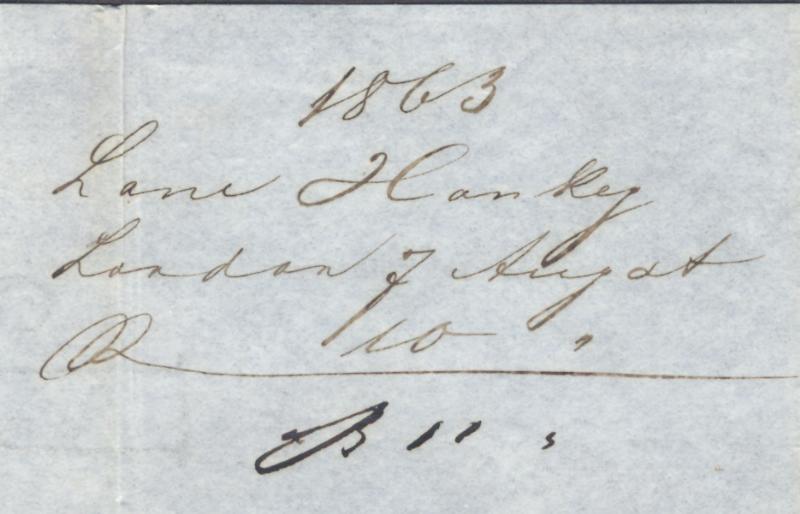 1863
Lane Hankey
London 7 Augst
R 10 "
B 11 "